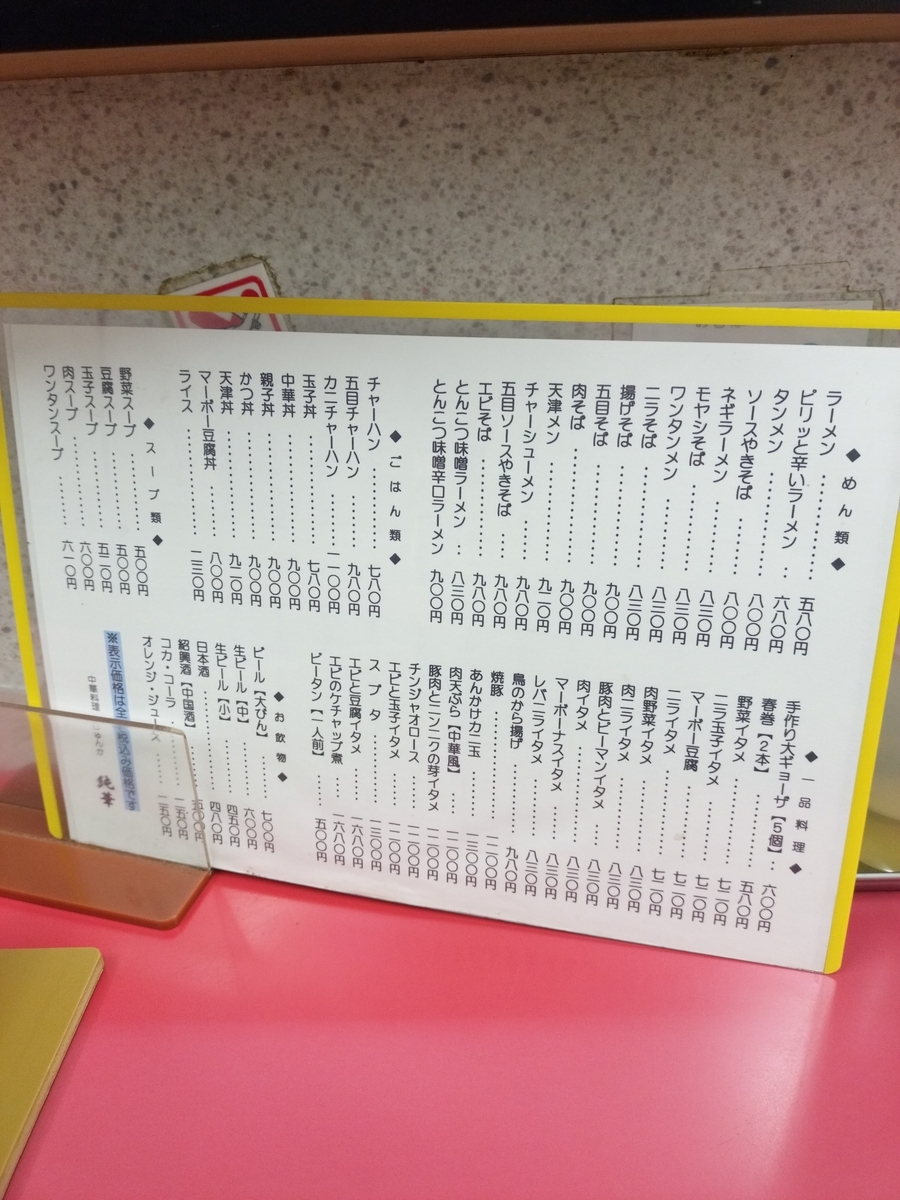 ◆めん類◆
ラーメン………… 五八〇円
ピリッと辛いラーメン‥ 六八〇円
タンメン………… 八〇〇円
ソースやきそば…… 八〇〇円
ネギラーメン……… 八三〇円
モヤシそば……… 八三〇円
ワンタンメン……… 八三〇円
ニラそば………… 八三〇円
揚げそば………… 九〇〇円
五目そば………… 九〇〇円
肉そば………… 九〇〇円
天津メン………… 九二〇円
チャーシューメン…… 九八〇円
五目ソースやきそば… 九八〇円
エビそば………… 九八〇円
とんこつ味噌ラーメン‥ 八三〇円
とんこつ味噌辛口ラーメン 九〇〇円
◆ごはん類◆
チャーハン……… 七八〇円
五目チャーハン…… 九八〇円
カニチャーハン…… 一一〇〇円
玉子丼………… 七八〇円
中華丼………… 九〇〇円
親子丼………… 九〇〇円
かつ丼………… 九〇〇円
天津丼………… 九二〇円
マーボー豆腐丼…… 八〇〇円
ライス………… 二三〇円
◆スープ類◆
野菜スープ……… 五〇〇円
豆腐スープ……… 五〇〇円
玉子スープ……… 五二〇円
肉スープ……… 六〇〇円
ワンタンスープ…… 六一〇円
◆一品料理◆
手作り大ギョーザ【5個】‥ 六〇〇円
春巻【2本】……… 五八〇円
野菜イタメ……… 七二〇円
ニラ玉子イタメ…… 七二〇円
マーボー豆腐……… 七二〇円
ニライタメ……… 七二〇円
肉野菜イタメ……… 八三〇円
肉ニライタメ……… 八三〇円
豚肉とピーマンイタメ… 八三〇円
肉イタメ………… 八三〇円
マーボーナスイタメ… 八三〇円
レバニライタメ…… 八三〇円
鳥のから揚げ……… 九八〇円
焼豚………… 一二〇〇円
あんかけカニ玉…… 一三〇〇円
肉天ぷら【中華風】… 一二〇〇円
豚肉とニンニクの芽イタメ 一二〇〇円
チンジャオロース…… 一二〇〇円
エビと玉子イタメ…… 一二〇〇円
スブタ………… 一三〇〇円
エビと豆腐イタメ…… 一六八〇円
エビのケチャップ煮… 一六八〇円
ピータン【一人前】… 五〇〇円
◆お飲物◆
ビール【大びん】…… 七〇〇円
生ビール【中】…… 六〇〇円
生ビール【小】…… 四五〇円
日本酒………… 四八〇円
紹興酒【中国酒】…… 五〇〇円
コカ・コーラ……… 二五〇円
オレンジ・ジュース… 二五〇円
※表示価格は全て税込の価格です
中華料理 じゅんか
純華